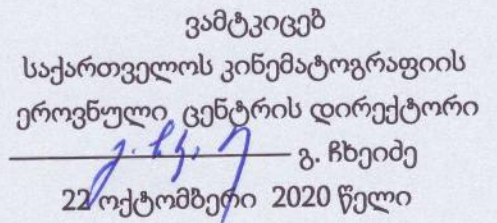 ვამტკიცებ
საქართველოს კინემატოგრაფიის
ეროვნული ცენტრის დირექტორი
გ. ჩხეიძე
22 ოქტომბერი 2020 წელი